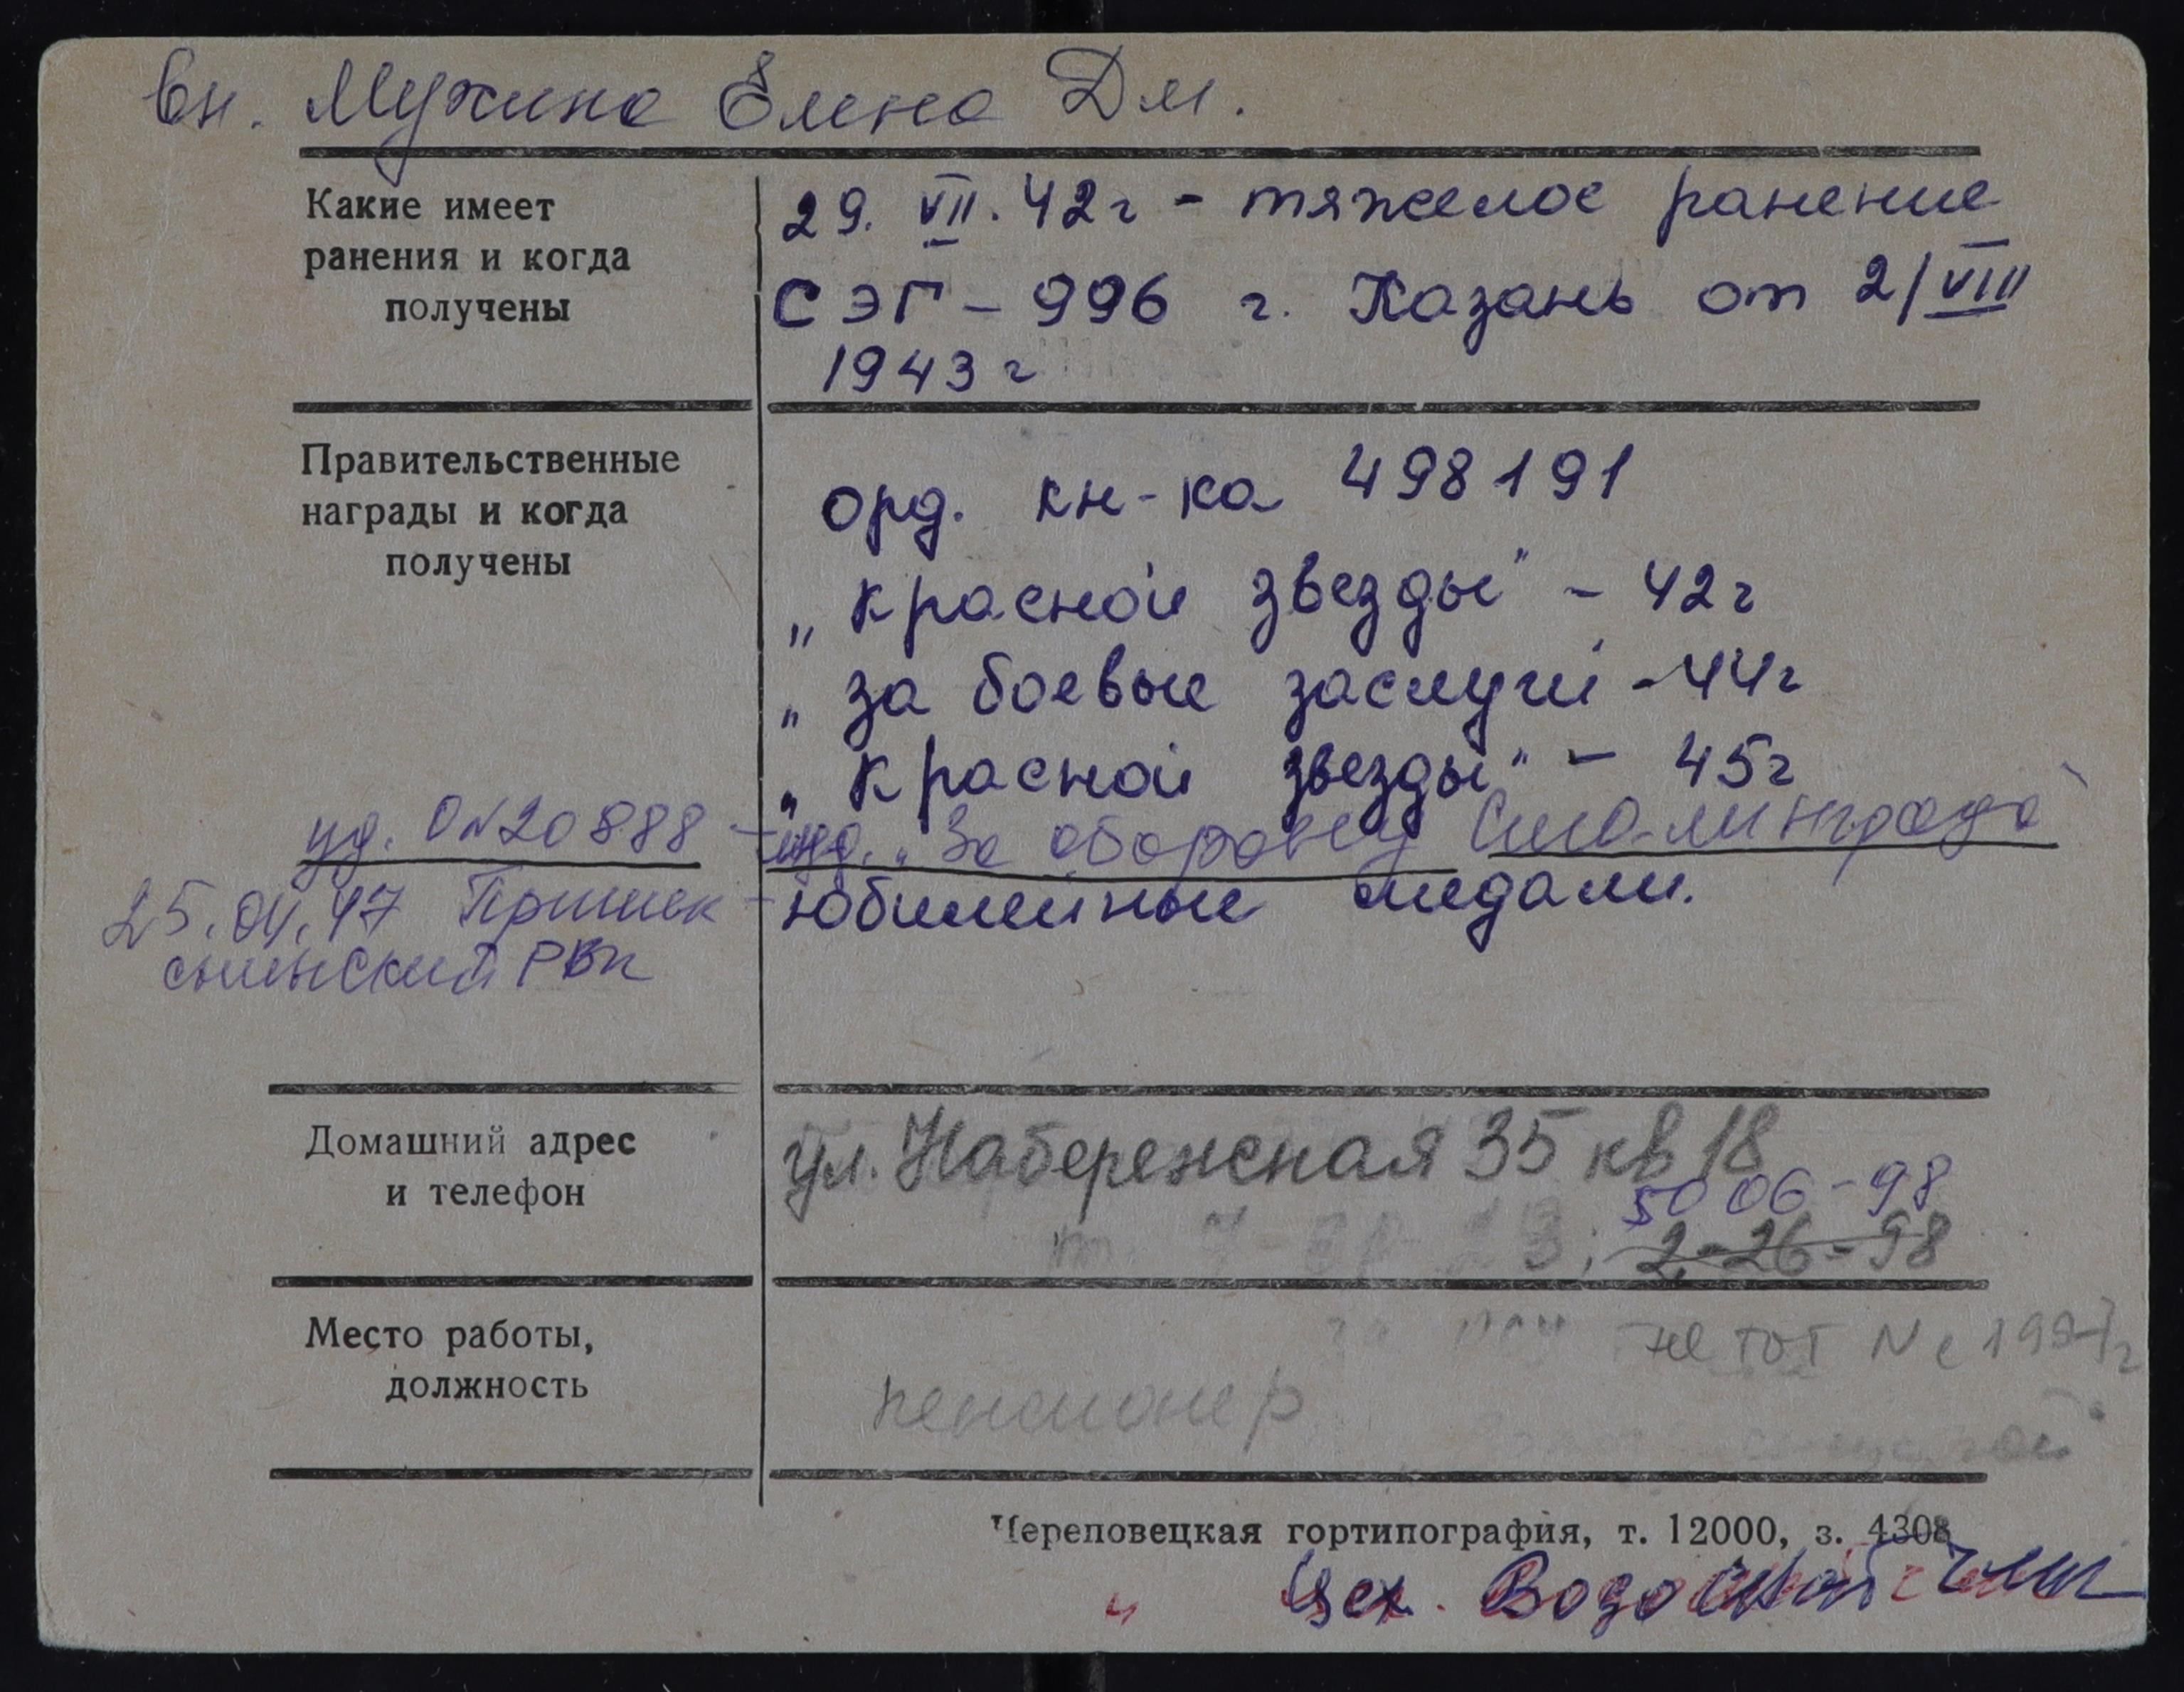 вн. Мужина Елена Дм.
Какие имеет
ранения и когда
получены
29. VII. 42г - тяжелое ранение
СЭГ - 996 г. Казань от 2/VIII
1943 г
Правительственные
награды и когда
получены
орд. кн-ка 498191
„Красной звезды" - 42г
„за боевые заслуги - 44г
„Красной звезды" - 45г
уд. 0№20888 - „За оборону Сталинграда
25.04.47
РВК
- юбилейные медали.
Домашний адрес
и телефон
ул. Набережная 35 кв 18
50 06-98
2-26-98
Место работы,
должность
не тот № с 1997г
пенсионер
Череповецкая гортипография, т. 12000, з. 4308
Цех.